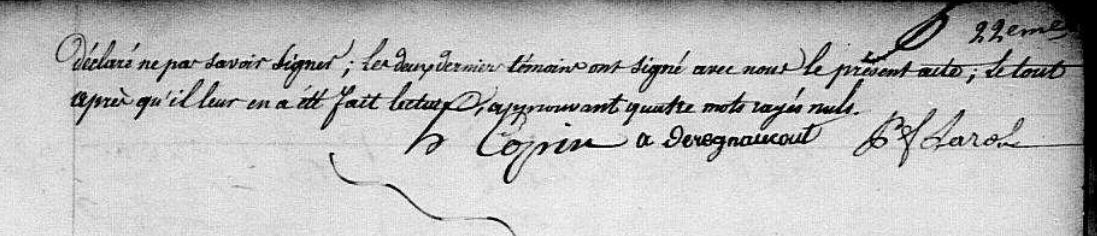 22eme
déclaré ne pas savoir signer ; les deux dernier témoins ont signé avec nous le présent acte ; le tout
après qu'il leur en a été fait lecture, approuvant quatre mots rayés nuls.
h Copin a deregnaucourt